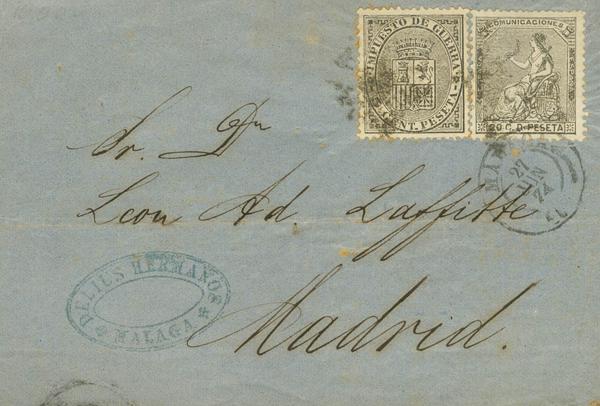 IMPUESTO DE GUERRA
5 CENT. PESETA
COMUNICACIONES
20 C. D PESETA
Sr. Dn
Leon Ad Laffitte
Madrid.
27
JUN
74
DELIUS HERMANOS
MALAGA